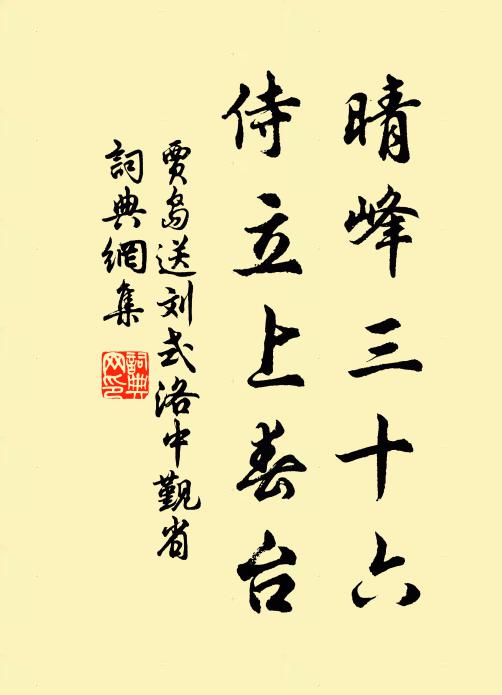 晴峰三十六
侍立上春台
賈島送刘式洛中觐省
詞典網集
詞典网印